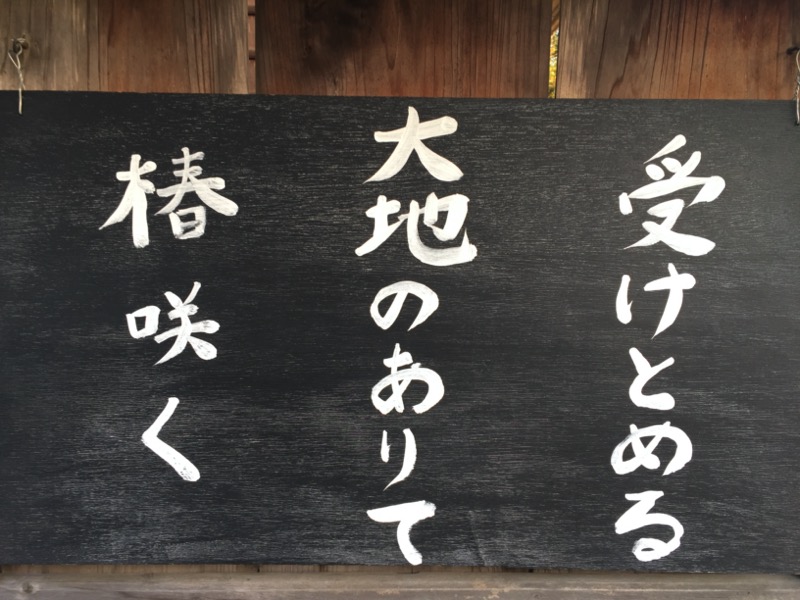 受けとめる
大地のありて
椿咲く